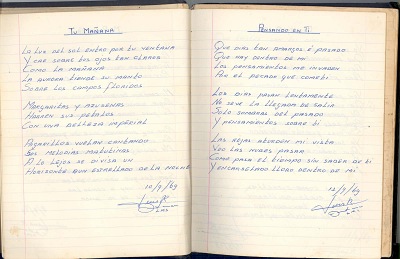 TU MAÑANA
LA LUZ DEL SOL ENTRO POR TU VENTANA
Y CAE SOBRE TUS OJOS TAN CLAROS
COMO LA MAÑANA
LA AURORA TIENDE SU MANTO
SOBRE LOS CAMPOS FLORIDOS
MARGARITAS Y AZUSENAS
ABREN SUS PETALOS
CON UNA BELLEZA IMPERIAL
PAJARILLOS VUELAN CANTANDO
SUS MELODIAS MATUTINAS
A LO LEJOS SE DIVISA UN
HORIZONTE QUE ESTRELLADO DE LA NOCHE
10/7/69
PENSANDO EN TI
QUE DIAS TAN AMARGOS E PASADO
QUE HAY DENTRO DE MI
LOS PENSAMIENTOS ME INVADEN
POR EL PECADO QUE COMETI
LOS DIAS PASAN LENTAMENTE
NO SE VE LA LLEGADA DE
SOLO SOMBRAS DEL PASADO
Y PENSAMIENTOS SOBRE TI
LAS REJAS ATURDEN MI VISTA
VEO LAS NUBES PASAR
COMO PASA EL TIEMPO SIN SABER DE TI
Y ENCARSELADO LLORO DENTRO DE MI
12/7/69